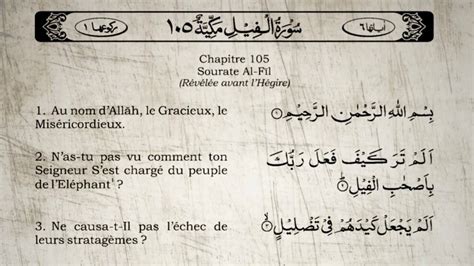 ركوعها ١
سُوْرَةُ الْفِيْلِ مَكِّيَّةٌ ١٠٥
اٰياتها ٦
Chapitre 105
Sourate Al-Fīl
(Révélée avant l’Hégire)
1. Au nom d’Allāh, le Gracieux, le
Miséricordieux.
بِسْمِ اللّٰهِ الرَّحْمٰنِ الرَّحِيْمِ ۝١
2. N’as-tu pas vu comment ton
Seigneur S’est chargé du peuple
de l’Eléphant¹ ?
اَلَمْ تَرَ كَيْفَ فَعَلَ رَبُّكَ
بِاَصْحٰبِ الْفِيْلِ ۝٢
3. Ne causa-t-Il pas l’échec de
leurs stratagèmes ?
اَلَمْ يَجْعَلْ كَيْدَهُمْ فِيْ تَضْلِيْلٍ ۝٣